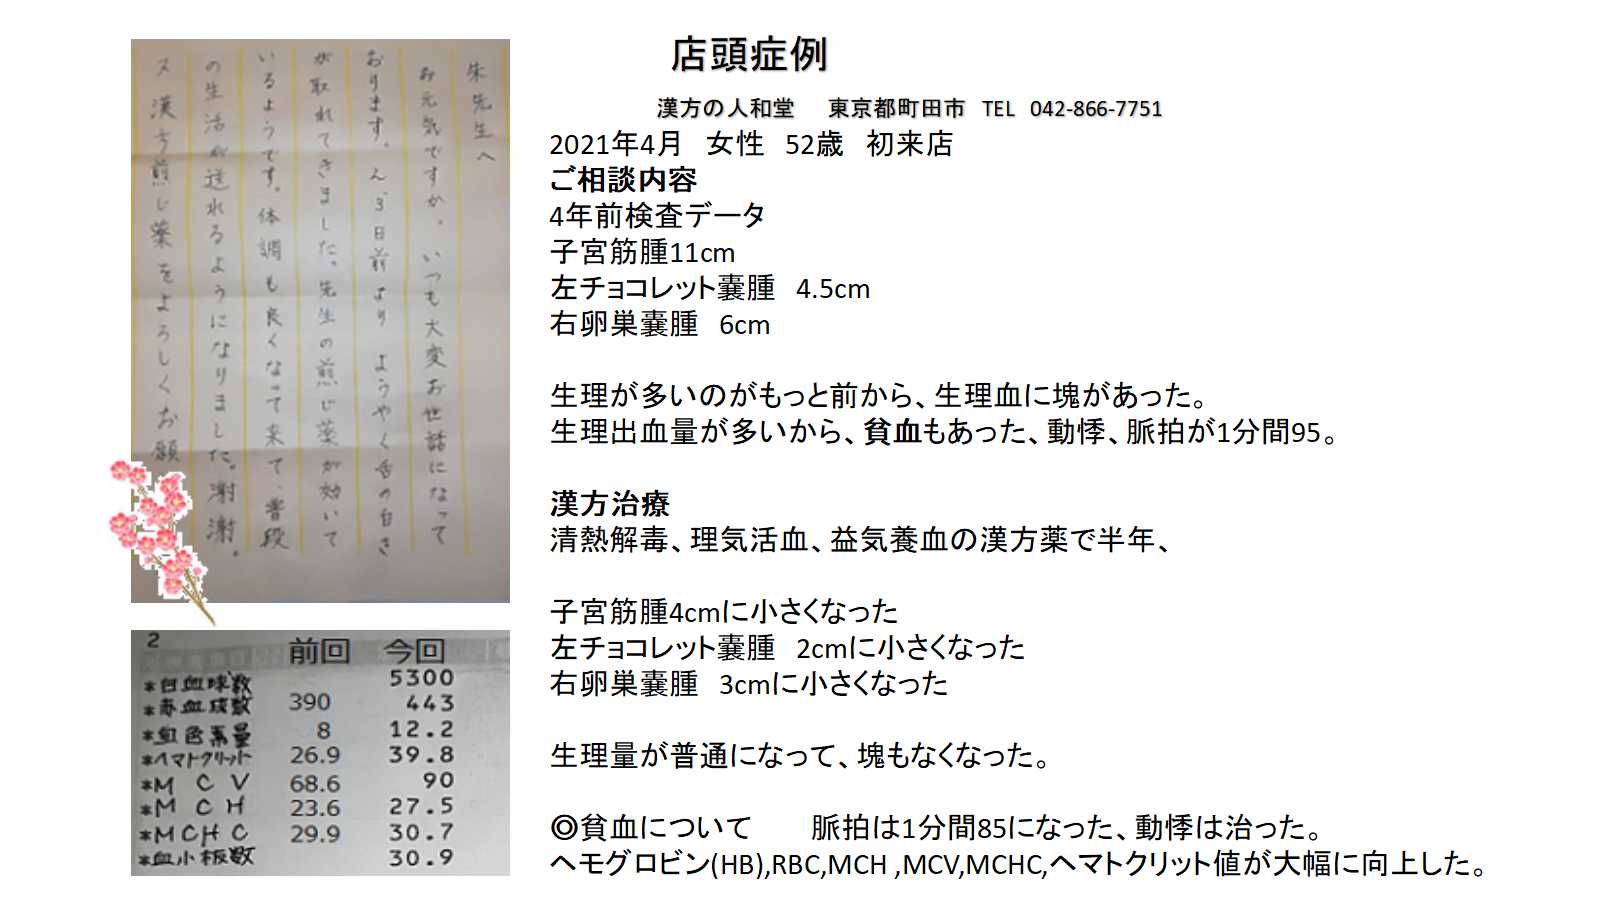 店頭症例
漢方の人和堂 東京都町田市 TEL 042-866-7751
2021年4月 女性 52歳 初来店
ご相談内容
4年前検査データ
子宮筋腫11cm
左チョコレット嚢腫 4.5cm
右卵巣嚢腫 6cm
生理が多いのがもっと前から、生理血に塊があった。
生理出血量が多いから、貧血もあった、動悸、脈拍が1分間95。
漢方治療
清熱解毒、理気活血、益気養血の漢方薬で半年、
子宮筋腫4cmに小さくなった
左チョコレット嚢腫 2cmに小さくなった
右卵巣嚢腫 3cmに小さくなった
生理量が普通になって、塊もなくなった。
◎貧血について 脈拍は1分間85になった、動悸は治った。
ヘモグロビン(HB),RBC,MCH ,MCV,MCHC,ヘマトクリット値が大幅に向上した。
朱先生へ
お元気ですか。いつも大変お世話になって
おります。2、3日前より ようやく舌の白さ
が取れてきました。先生の煎じ薬が効いて
いるようです。体調も良くなって来て、普段
の生活が送れるようになりました。謝謝。
又 漢方煎じ薬をよろしくお願
2 前回 今回
*白血球数 5300
*赤血球数 390 443
*血色素量 8 12.2
*ヘマトクリット 26.9 39.8
*MCV 68.6 90
*MCH 23.6 27.5
*MCHC 29.9 30.7
*血小板数 30.9